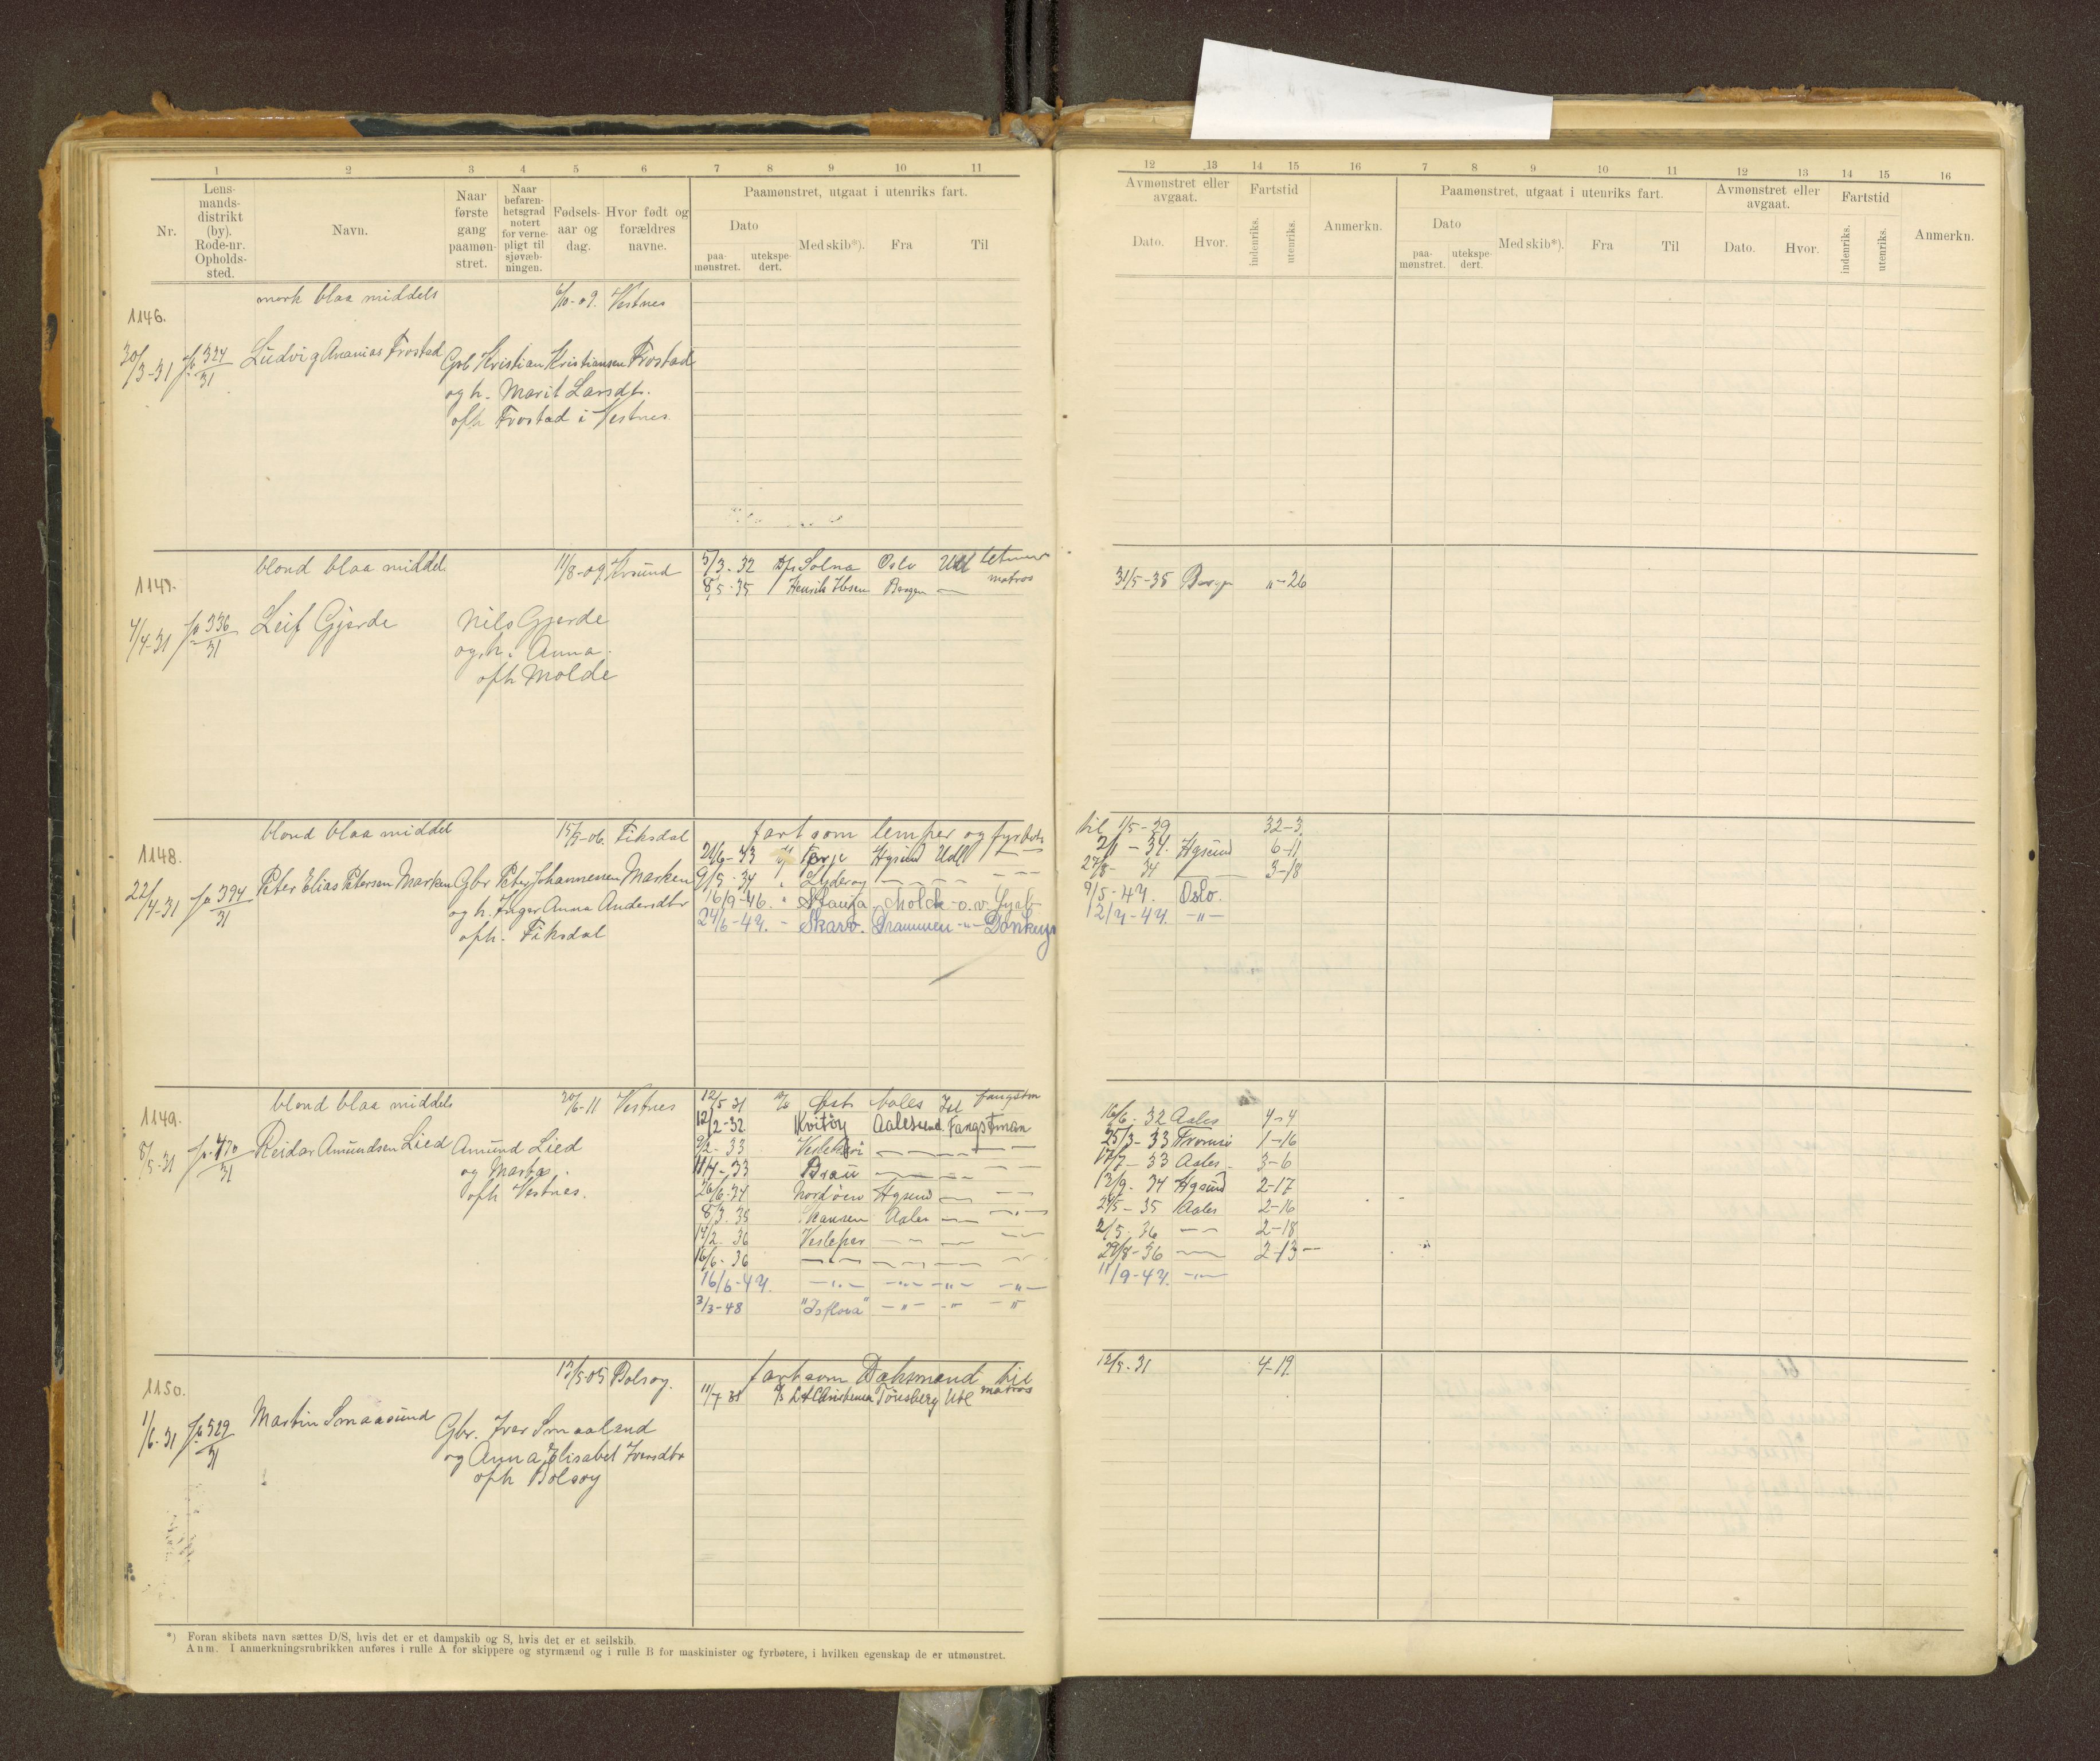 1 2 3 4 5 6 7 8 9 10 11
Nr. Lens-mandsdistrikt (by). Rode-nr. Opholds-sted. Navn. Naar første gang paamøn-stret. Naar befaren-hetsgrad notert for verne-pligt til sjøvæb-ningen. Fødsels-aar og dag. Hvor født og forældres navne. Paamønstret, utgaat i utenriks fart.
Dato Med skib*). Fra Til
paa-mønstret. utekspe-dert.
12 13 14 15 16 7 8 9 10 11 12 13 14 15 16
Avmønstret eller avgaat. Fartstid Anmerkn. Paamønstret, utgaat i utenriks fart. Avmønstret eller avgaat. Fartstid Anmerkn.
Dato. Hvor. indenriks. utenriks. Dato Med skib*). Fra Til Dato. Hvor. indenriks. utenriks.
paa-mønstret. utekspe-dert.
mørk blaa middels 6/10-09. Vestnes
1146.
30/3-31 324/31 Ludvig Ananias Frostad Gbr Kristian Kristiansen Frostad
og h. Marit Larsdtr.
oph Frostad i Vestnes
blond blaa middel 11/8-09 Krsund 5/3-32 Solna Oslo Udl
1147. 8/5-35 Henrik Ibsen Bergen matros 31/5-35 Bergen "-26
4/4-31 336/31 Leif Gjerde Nils Gjerde
og h. Anna.
oph Molde
blond blaa middel 15/9-06. Fiksdal fart som lemper og fyrbøter til 1/5-29 32-3
1148. 21/6-33 Hgsund Udl 2/1-34. Hgsund 6-11
22/4-31 394/31 Peter Elias Petersen Marken Gbr Peter Johannessen Marken 9/5-34 Lyderøy 27/8-34 3-18
og h. Inger Anna Andersdtr 16/9-46. Molde 9/5-47. Oslo.
oph. Fiksdal 24/6-47. - Skarø. Drammen -"- Donkey 12/7-47. -"-
blond blaa middels 20/6-11 Vestnes 12/5 31 Øst Aales fangstm
1149. 12/2-32 Kvitøy Aalesund Fangstman 16/6-32 Aales 4-4
8/5-31 470/31 Reidar Amundsen Lied Amund Lied 9/2-33 Veslekari 25/3-33 Tromsø 1-16
og Marta. 11/4-33 17/7-33 Aales 3-6
oph Vestnes. 26/6-34 Nordøen Hgsund 12/9-34 Hgsund 2-17
8/3.35 Aales 24/5-35 Aales 2-16
14/2.36 Vesleper 2/5 36 2-18
16/6-36 29/8-36 2-13
16/6-47. 11/9-47.
3/3-48 "Isflora"
13/5-05 Bolsøy. fart som Dæksmand til 12/5-31 4-19.
1150. 11/7 31 L A Christensen Tønsberg Utl matros
1/6-31 529/31 Martin Smaasund Gbr. Iver Smaalend
og Anna Elisabet Iversdtr
oph Bolsøy
*) Foran skibets navn sættes D/S, hvis det er et dampskib og S, hvis det er et seilskib.
Anm. I anmerkningsrubrikken anføres i rulle A for skippere og styrmænd og i rulle B for maskinister og fyrbøtere, i hvilken egenskap de er utmønstret.